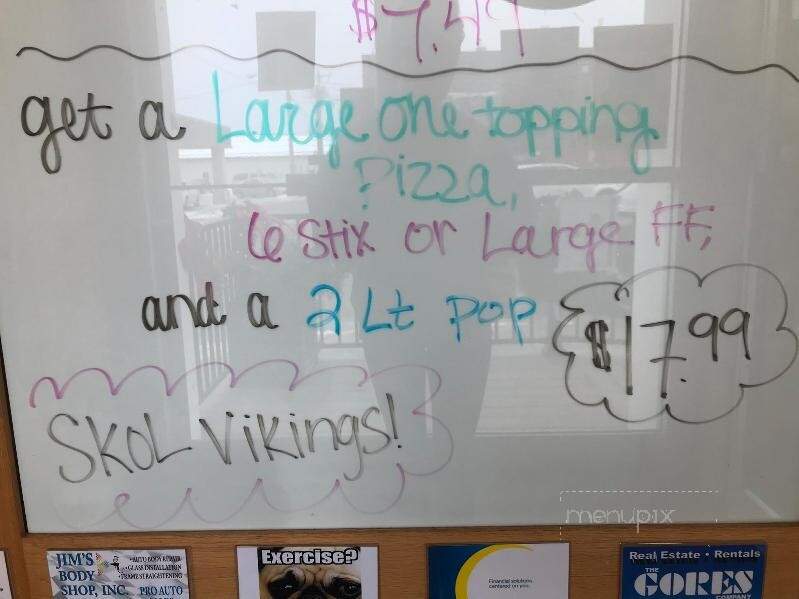 $7.49
get a Large one topping
Pizza,
6 Stix or Large FF,
and a 2 Lt pop
$17.99
SKOL Vikings!
menupix
JIM'S
BODY
SHOP, INC.
• AUTO BODY REPAIR
• GLASS INSTALLATION
• FRAME STRAIGHTENING
PRO AUTO
Exercise?
Financial solutions
centered on you.
Real Estate • Rentals
THE
GORES
COMPANY